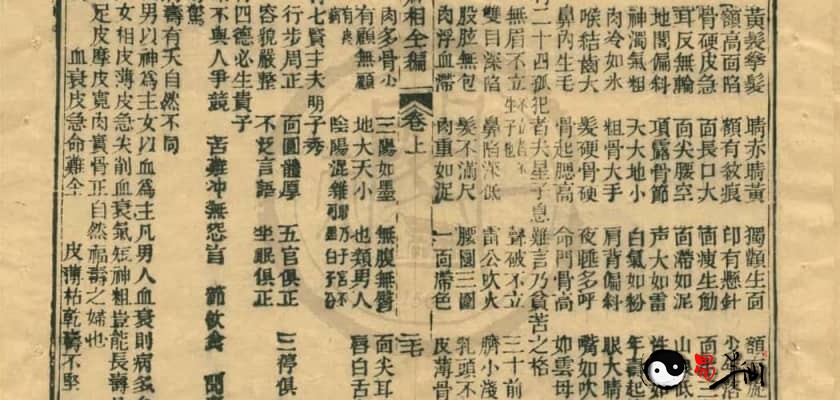 黃髮拳髮 睛赤睛黃 獨顴生面 額有旋
額高面陷 額有敎痕 印有懸針 少年落
骨硬皮急 面長口大 面瘦生筋 面三
耳反無輪 面尖腰空 面滯如泥 山低
地閣偏斜 項露骨節 聲大如雷 性如
神濁氣粗 大大地小 白氣如粉 年壽起
肉冷如氷 粗骨大手 肩背偏斜 眼大睛
喉結齒大 髮硬骨硬 夜睡多呼 嘴如吹
鼻內生毛 骨起腮高 命門骨高 如雲母
有二十四孤犯者夫星子息難言乃貧苦之格
無眉不立 聲破不立 三十前
雙目深陷 鼻陷深低 雷公吹火 臍小淺
股肱無包 髮不滿尺 腰圓三圍 乳頭不
肉浮血滯 肉重如泥 一面滯色 皮薄骨
相全編 卷上 三七
肉多骨少 三陽如墨 無腹無臀 面尖耳
有顴無顧 地大天小 也類男人 唇白舌
陰陽混雜
有七賢主夫明子秀
行步周正 面圓體厚 五官俱正 三停俱
容貌嚴整 不泛言語 坐眠俱正
有四德必生貴子
不與人爭競 苦難冲無怨言 節飲食 聞
驚
壽有夭自然不同
男以神為主女以血為主凡男人血衰則病多
女相皮薄皮急尖削血衰氣短神粗豈能長壽
足皮摩皮寬肉實骨正自然福壽之婦也
血衰皮急命難全 皮薄枯乾壽不堅